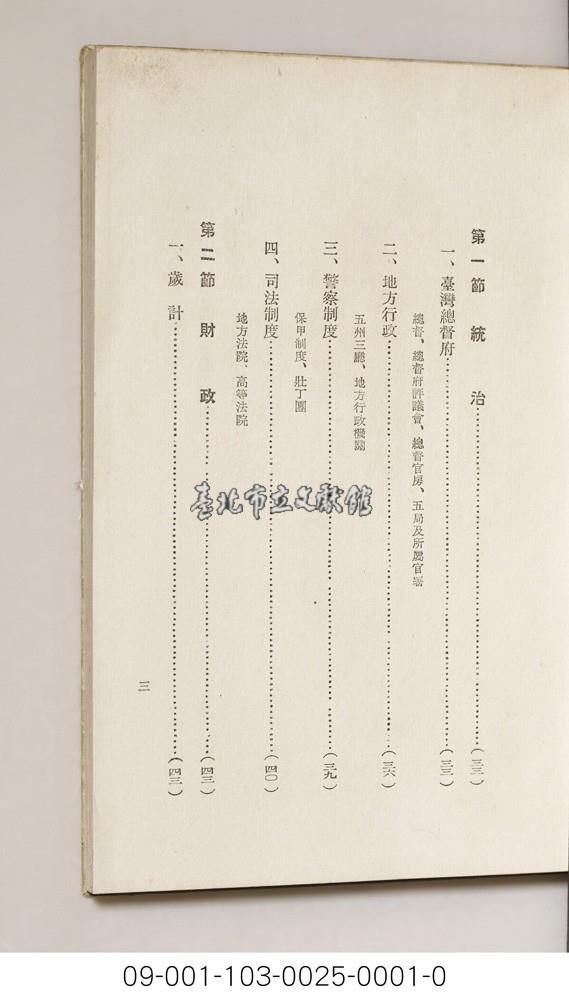 第一節 統 治……(三三)
一、臺灣總督府……(三三)
總督、總督府評議會、總督官房、五局及所屬官署
二、地方行政……(三六)
五州三廳、地方行政機關
三、警察制度……(三九)
保甲制度、壯丁團
四、司法制度……(四〇)
地方法院、高等法院
第二節 財 政……(四三)
一、歲 計……(四三)
三
臺北市立文獻館
09-001-103-0025-0001-0